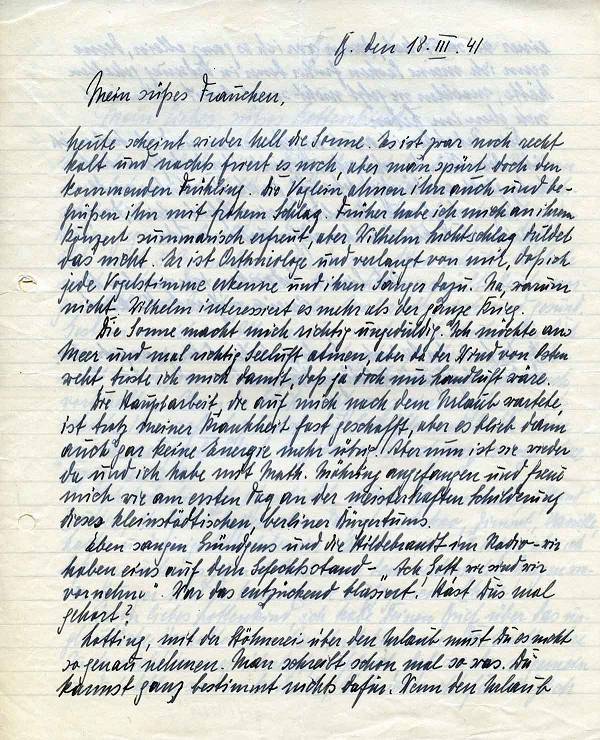 O. den 18. III. 41
Mein süßes Frauchen,
heute scheint wieder hell die Sonne. Es ist zwar noch recht
kalt und nachts friert es noch, aber man spürt doch den
kommenden Frühling. Die Vöglein ahnen ihn auch und be-
grüßen ihn mit frohem Schlag. Früher habe ich mich an ihrem
Konzert summarisch erfreut, aber Wilhelm Lichtschlag duldet
das nicht. Er ist Orthiologe und verlangt von mir, daß ich
jede Vogelstimme erkenne und ihren Sänger dazu. Na, warum
nicht. Wilhelm interessiert es mehr als der ganze Krieg.
Die Sonne macht mich richtig ungeduldig. Ich möchte ans
Meer und mal richtig Seeluft atmen, aber da der Wind von Osten
weht, tröste ich mich damit, daß ja doch nur Landluft wäre.
Die Hauptarbeit, die auf mich nach dem Urlaub wartete,
ist trotz meiner Krankheit fast geschafft, aber es blieb dann
auch gar keine Energie mehr übrig. Aber nun ist sie wieder
da und ich habe mit Math. Möhring angefangen und freue
mich wie am ersten Tag an der meisterhaften Schilderung
dieses kleinstädtischen, berliner Bürgertums.
Eben sangen Gründgens und die Hildebrandt im Radio - wir
haben eins auf dem Gefechtsstand - "Ach Gott wie sind wir
vornehm". War das entzückend blasiert! Hast Du's mal
gehört?
mit der Stöhnerei über den Urlaub mußt Du es nicht
so genau nehmen. Man schreibt schon mal so was. Du
kannst ganz bestimmt nichts dafür. Wenn den Urlaub